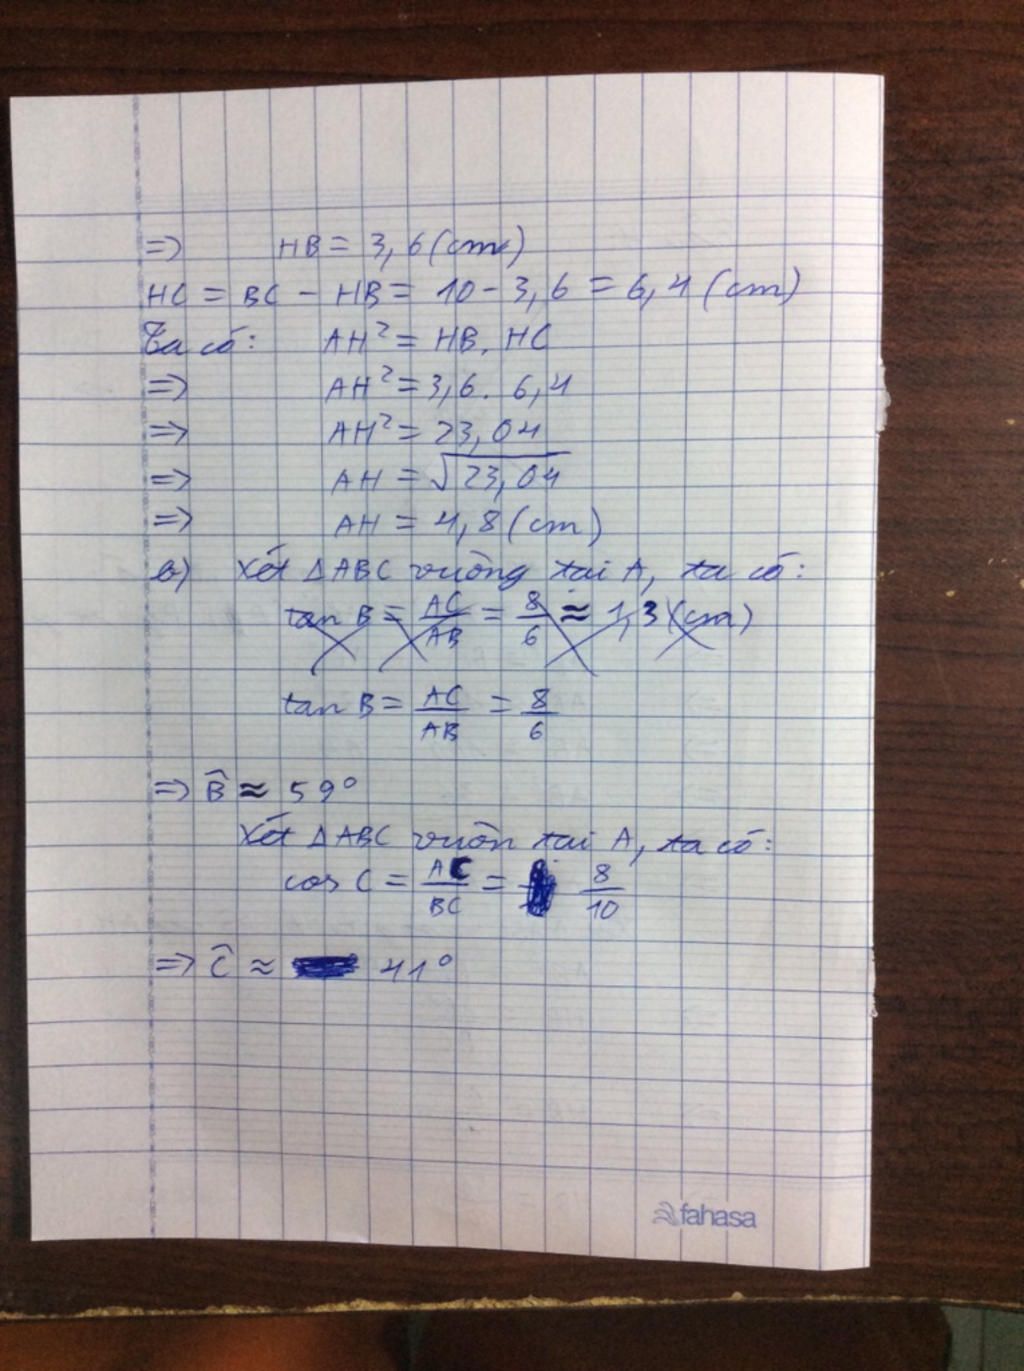 => HB = 3,6 (cm)
HC = BC - HB = 10 - 3,6 = 6,4 (cm)
Ta có: AH² = HB. HC
=> AH² = 3,6. 6,4
=> AH² = 23,04
=> AH = √23,04
=> AH = 4,8 (cm)
b) Xét ΔABC vuông tại A, ta có:
tan B = AC/AB = 8/6 ≈ 1,3 (cm)
tan B = AC/AB = 8/6
=> B̂ ≈ 59°
Xét ΔABC vuôn tại A, ta có:
cos C = AC/BC = 8/10
=> Ĉ ≈ 41°
fahasa